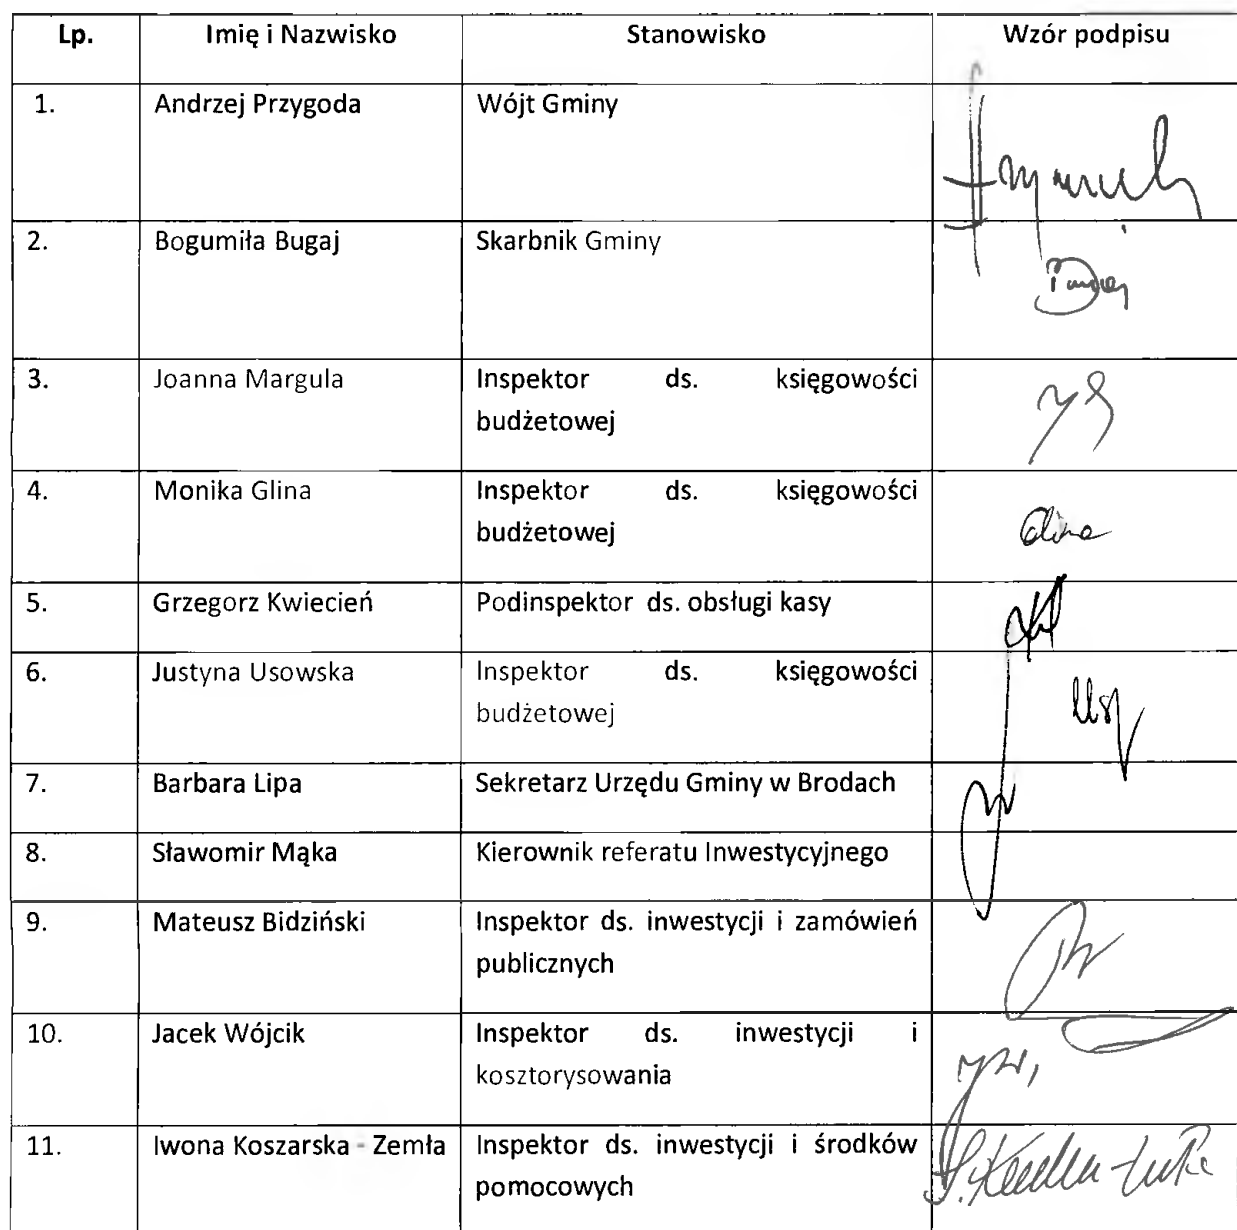 Lp. Imię i Nazwisko Stanowisko Wzór podpisu
1. Andrzej Przygoda Wójt Gminy
2. Bogumiła Bugaj Skarbnik Gminy
3. Joanna Margula Inspektor ds. księgowości
budżetowej
4. Monika Glina Inspektor ds. księgowości
budżetowej
Glina
5. Grzegorz Kwiecień Podinspektor ds. obsługi kasy
6. Justyna Usowska Inspektor ds. księgowości
budżetowej
7. Barbara Lipa Sekretarz Urzędu Gminy w Brodach
8. Sławomir Mąka Kierownik referatu Inwestycyjnego
9. Mateusz Bidziński Inspektor ds. inwestycji i zamówień
publicznych
10. Jacek Wójcik Inspektor ds. inwestycji i
kosztorysowania
11. Iwona Koszarska - Zemła Inspektor ds. inwestycji i środków
pomocowych